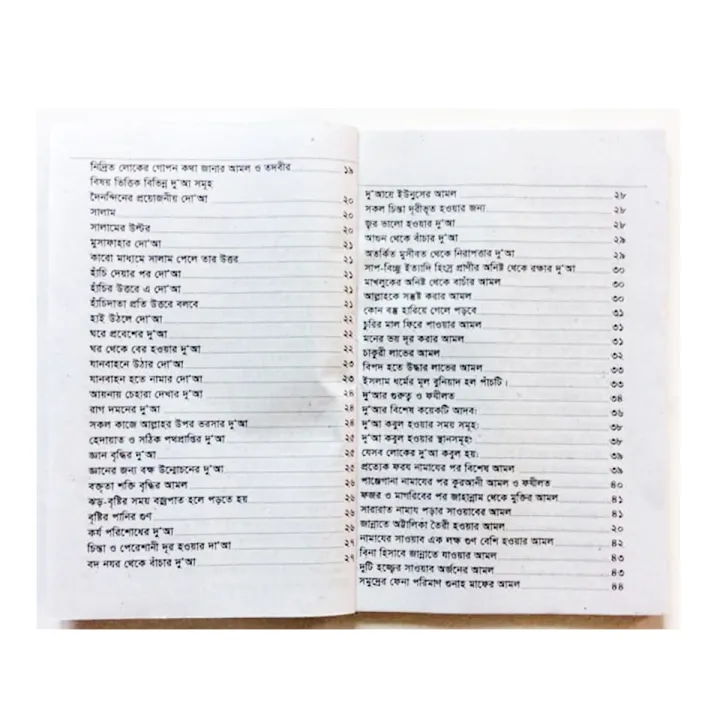 নিদ্রিত লোকের গোপন কথা জানার আমল ও তদবীর ১৯
বিষয় ভিত্তিক বিভিন্ন দু'আ সমূহ
দৈনন্দিনের প্রয়োজনীয় দো'আ ২০
সালাম ২০
সালামের উল্টর ২০
মুসাফাহার দো'আ ২১
কারো মাধ্যমে সালাম পেলে তার উত্তর ২১
হাঁচি দেয়ার পর দো'আ ২১
হাঁচির উত্তরে এ দো'আ ২১
হাঁচিদাতা প্রতি উত্তরে বলবে ২১
হাই উঠলে দো'আ ২২
ঘরে প্রবেশের দু'আ ২২
ঘর থেকে বের হওয়ার দু'আ ২২
যানবাহনে উঠার দো'আ ২৩
যানবাহন হতে নামার দো'আ ২৩
আয়নায় চেহারা দেখার দু'আ ২৪
রাগ দমনের দু'আ ২৪
সকল কাজে আল্লাহর উপর ভরসার দু'আ ২৪
হেদায়াত ও সঠিক পথপ্রাপ্তির দু'আ ২৫
জ্ঞান বৃদ্ধির দু'আ ২৫
জ্ঞানের জন্য বক্ষ উন্মোচনের দু'আ ২৫
বক্তৃতা শক্তি বৃদ্ধির আমল ২৬
ঝড়-বৃষ্টির সময় বজ্রপাত হলে পড়তে হয় ২৬
বৃষ্টির পানির গুণ ২৬
কর্য পরিশোধের দু'আ ২৭
চিন্তা ও পেরেশানী দূর হওয়ার দা'আ ২৭
বদ নযর থেকে বাঁচার দু'আ ২৭
দু'আয়ে ইউনুসের আমল ২৮
সকল চিন্তা দূরীভূত হওয়ার জন্য ২৮
জ্বর ভালো হওয়ার দু'আ ২৮
আগুন থেকে বাঁচার দু'আ ২৯
অতর্কিত মুসীবত থেকে নিরাপত্তার দু'আ ২৯
সাপ-বিচ্ছু ইত্যাদি হিংস্র প্রাণীর অনিষ্ট থেকে রক্ষার দু'আ ৩০
মাখলুকের অনিষ্ট থেকে বাচাঁর আমল ৩০
আল্লাহকে সন্তুষ্ট করার আমল ৩০
কোন বস্তু হারিয়ে গেলে পড়বে ৩১
চুরির মাল ফিরে পাওয়ার আমল ৩১
মনের ভয় দূর করার আমল ৩১
চাকুরী লাভের আমল ৩২
বিপদ হতে উদ্ধার লাভের আমল ৩৩
ইসলাম ধর্মের মূল বুনিয়াদ হল পাঁচটি। ৩৩
দু'আর গুরুত্ব ও ফযীলত ৩৪
দু'আর বিশেষ কয়েকটি আদব: ৩৬
দু'আ কবুল হওয়ার সময় সমূহ: ৩৮
দু'আ কবুল হওয়ার স্থানসমূহ: ৩৮
যেসব লোকের দু'আ কবুল হয়: ৩৯
প্রত্যেক ফরয নামাযের পর বিশেষ আমল ৩৯
পাঞ্জেগানা নামাযের পর কুরআনী আমল ও ফযীলত ৪০
ফজর ও মাগরিবের পর জাহান্নাম থেকে মুক্তির আমল ৪১
সারারাত নামায পড়ার সাওয়াবের আমল ৪১
জান্নাতে অট্টালিকা তৈরী হওয়ার আমল ২০
নামাযের সাওয়াব এক লক্ষ গুণ বেশি হওয়ার আমল ৪২
বিনা হিসাবে জান্নাতে যাওয়ার আমল ৪৩
দুটি হজ্জের সাওয়াব অর্জনের আমল ৪৩
সমুদ্রের ফেনা পরিমাণ গুনাহ মাফের আমল ৪৪